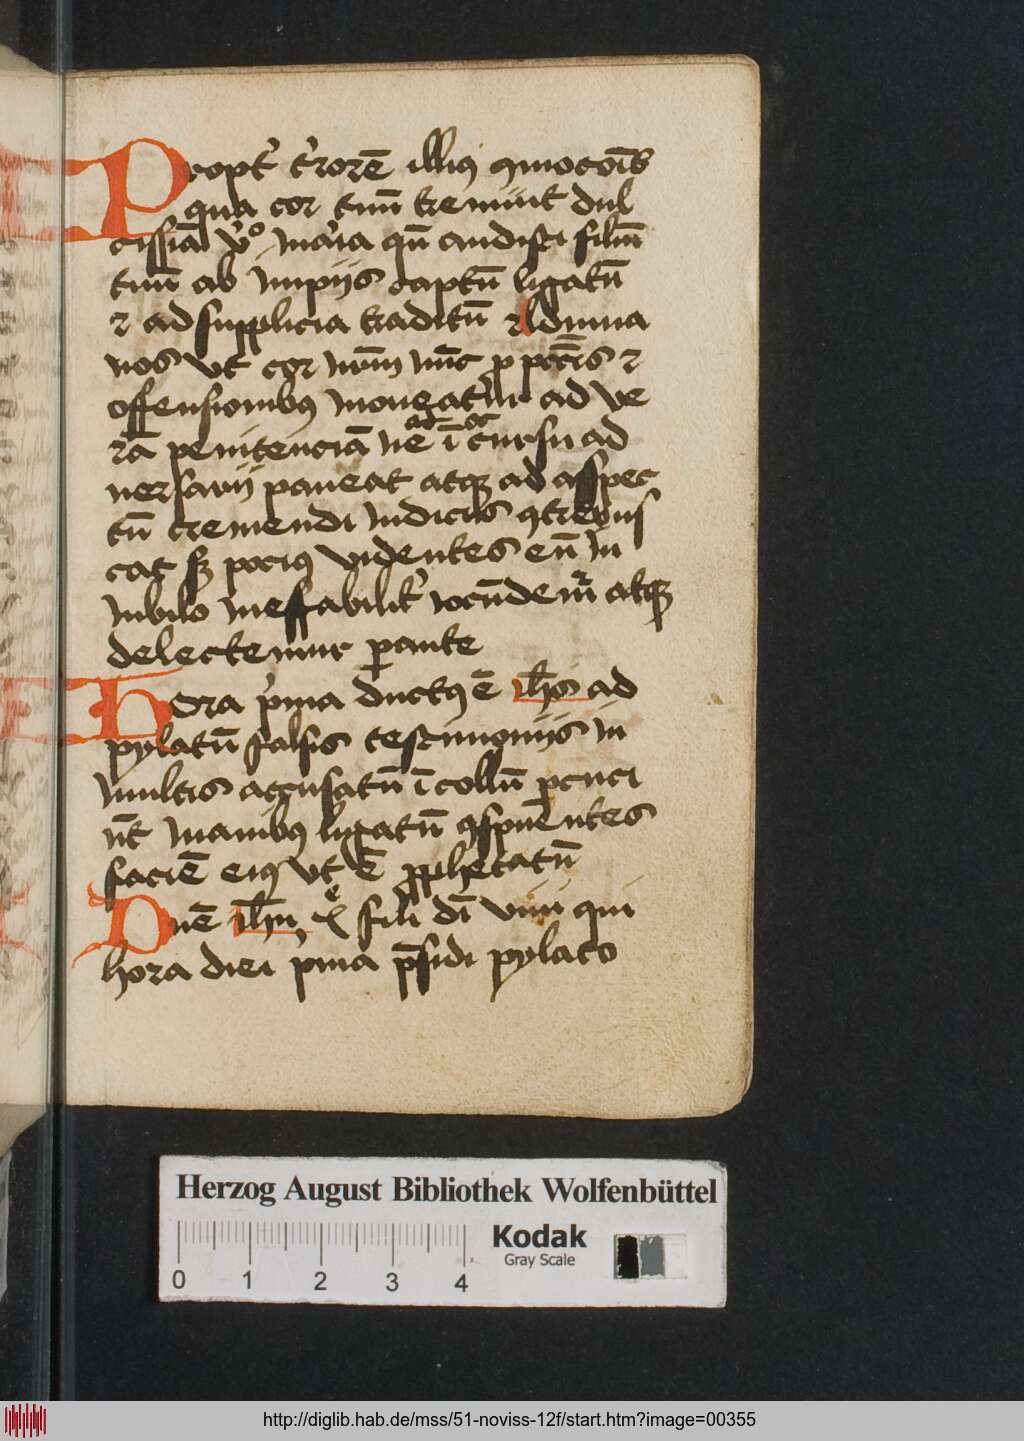 Propt' t'rorē illiꝰ
qua cor tuū tremuit dul
cissiā v'o maria qn̄ audisti filiū
tuū ab impiis captū ligatū
ꝛ ad supplicia traditū Adiuua
nos vt cor nrm̄ nūc p pctīs ꝛ
offensionibꝰ moueatur ad ve
rā penitenciā ne ī cursu ad
uersarii paueat atqꝫ ad aspec
tū tremendi iudicis
cat sꝫ pociꝰ videntes eū in
iubilo ineffabilit' iocūdemr̄ atqꝫ
delectemur parite
Hora p'ma ductꝰ ē ih̄s ad
pylatū falsis testimoniis in
multis accusatū ī collū pcuci
ūt manibꝰ ligatū ꝯspuētes
faciē eiꝰ vt ē pphetatū
Dn̄e ih̄u xp̄e fili di viui qui
hora diei p'ma p̄sidi pylato
Herzog August Bibliothek Wolfenbüttel
Kodak
Gray Scale
0 1 2 3 4
http://diglib.hab.de/mss/51-noviss-12f/start.htm?image=00355